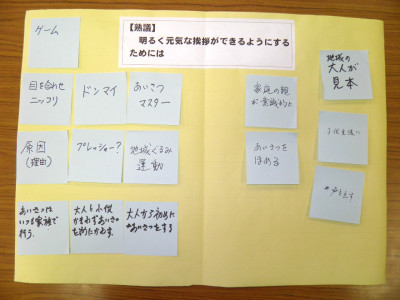 【熟議】
明るく元気な挨拶ができるようにする
ためには
ゲーム
目を合わせ
ニッコリ
ドンマイ
あいさつ
マスター
原因
(理由)
プレッシャー?
地域ぐるみ
運動
あいさつは
いつも家族で
行う。
大人も小供
かまわずあいさつ
大人から初めに
あいさつをする
家庭の親
が意識的に
あいさつを
ほめる
地域の
大人が
見本
声を出す